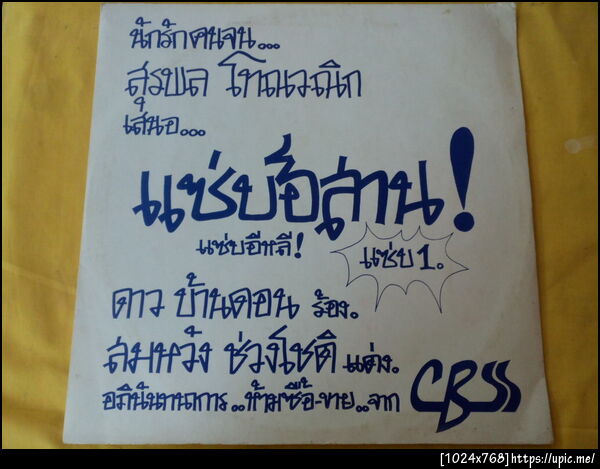 นักรักคนจน...
สุรพล โทณวณิก
เสนอ...
แซ่บอีสาน!
แซ่บอีหลี!
แซ่บ 1.
ดาว บ้านดอน ร้อง.
สมหวัง ช่วงโชติ แต่ง.
อภินันทนาการ..ห้ามซื้อ-ขาย..จาก CBSS
[1024x768]https://upic.me/